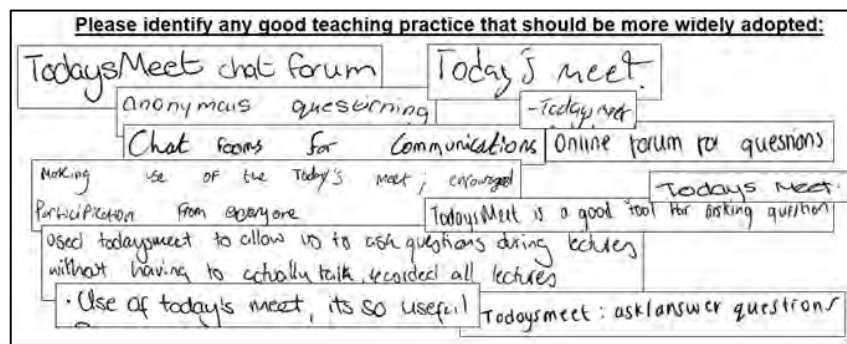 Please identify any good teaching practice that should be more widely adopted:
TodaysMeet chat forum
Today's meet.
anonymous questioning
- Today meet
Chat rooms for communications
Online forum for questions
Making use of the Today's meet; encouraged
participation from everyone
Todays Meet.
TodaysMeet is a good tool for asking question
Used todaysmeet to allow us to ask questions during lectures
without having to actually talk, recorded all lectures
· Use of today's meet, its so useful
Todaysmeet: ask/answer questions